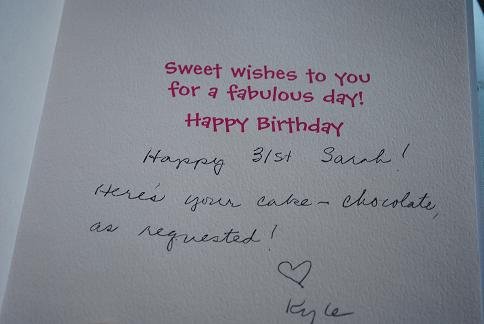 Sweet wishes to you
for a fabulous day!
Happy Birthday
Happy 31st Sarah!
Here's your cake - chocolate,
as requested!
Kyle